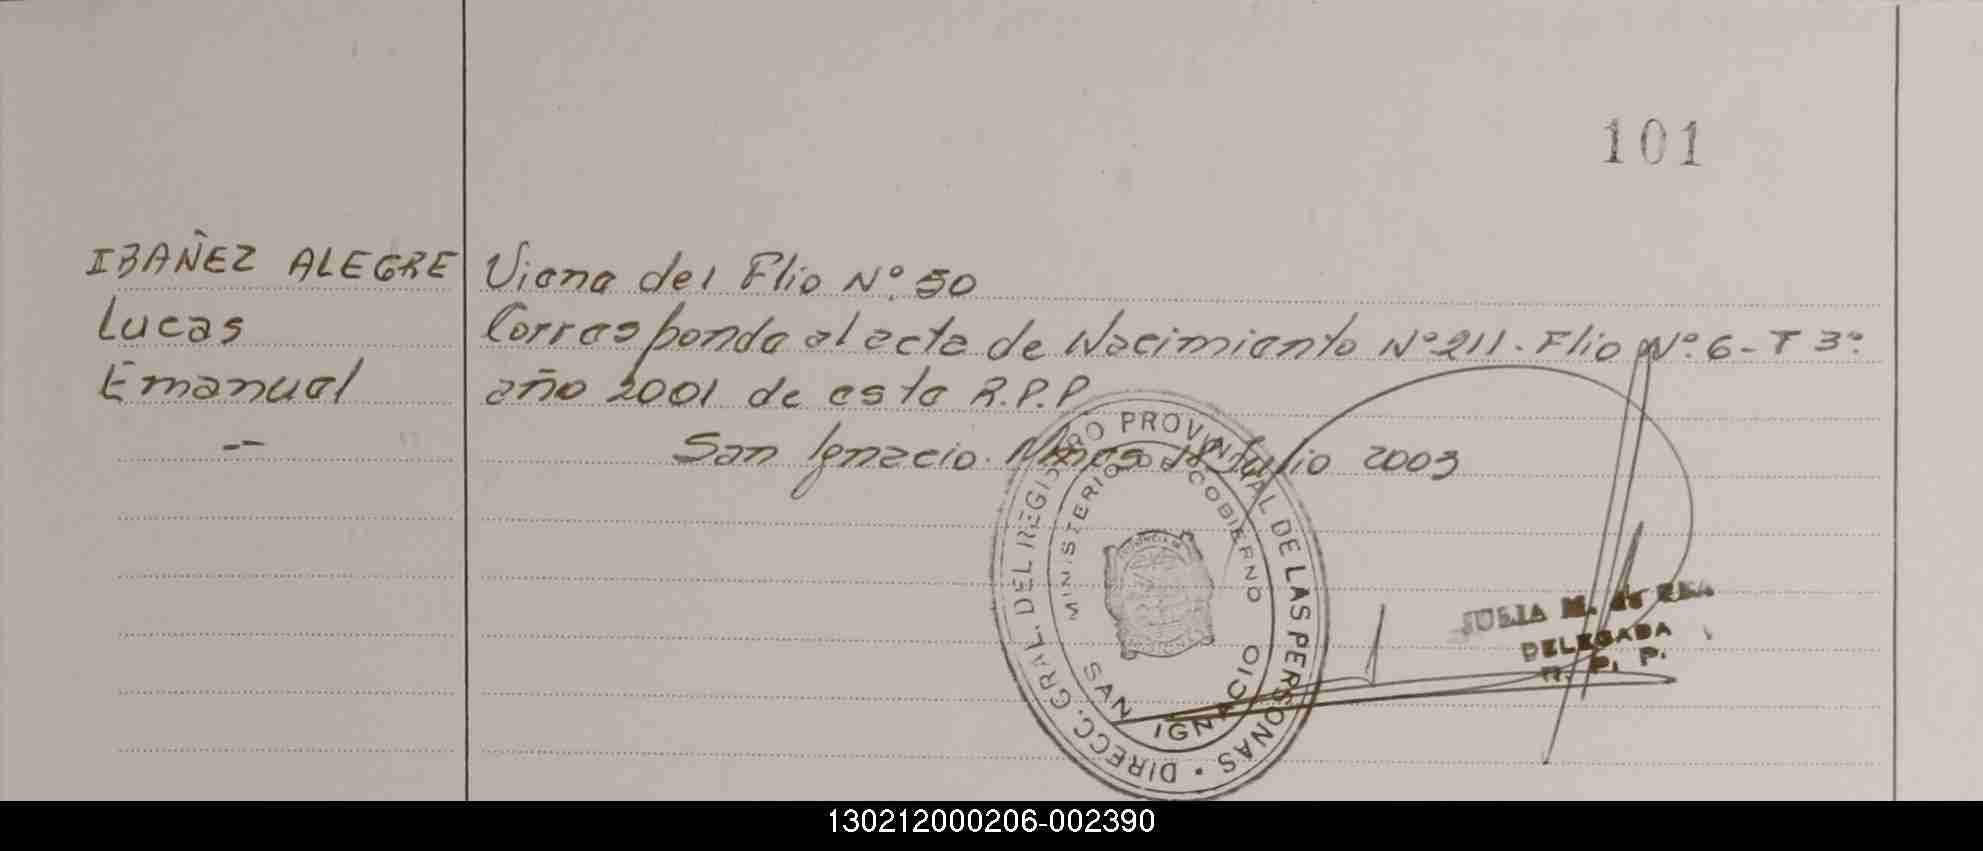 101
IBAÑEZ ALEGRE
Lucas
Emanuel
--
Viene del Flio Nº 50
Corresponde al acta de Nacimiento Nº 211 - Flio Nº 6 - T 3º
año 2001 de esta R.P.P
San Ignacio. Mnes Julio 2003
DIRECC. GRAL. DEL REGISTRO PROVINCIAL DE LAS PERSONAS
MINISTERIO DE GOBIERNO
SAN IGNACIO
JULIA M. de
DELEGADA
R. P. P.
130212000206-002390